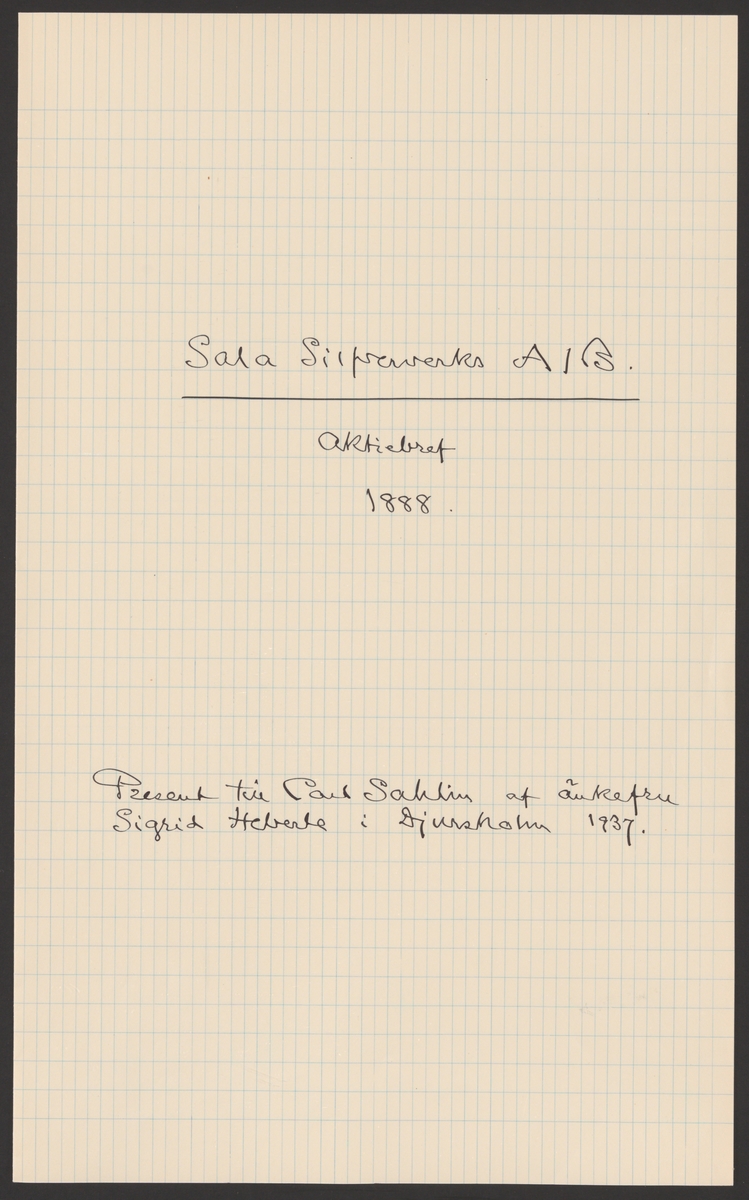 Sala Silfververks A/B.
Aktiebref
1888.
Present till Carl Sahlin af änkefru
Sigrid i Djursholm 1937.